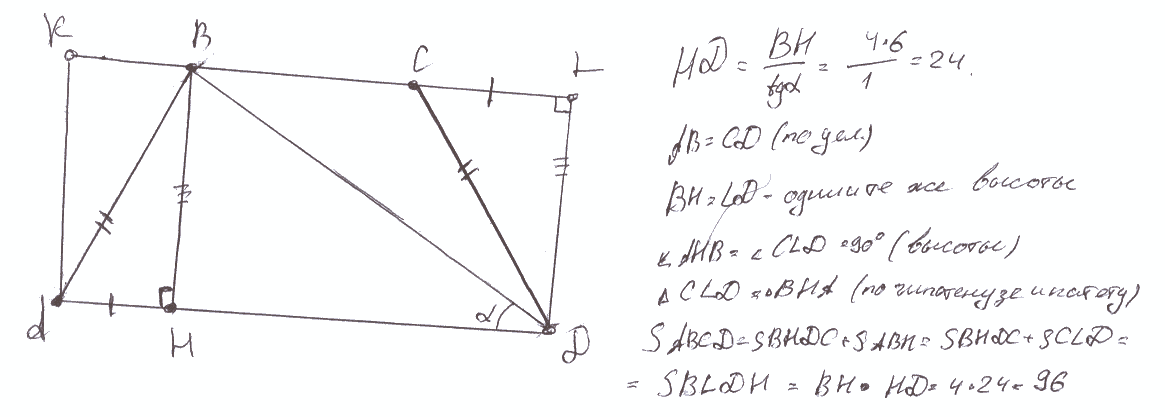 K B C L
HD = BH/tgα = 4·6/1 = 24.
AB = CD (по усл.)
BH = LD - одни и те же высоты
∠ AHB = ∠ CLD = 90° (высоты)
Δ CLD = Δ BHA (по гипотенузе и катету)
S ABCD = S BHDC + S ABH = S BHDC + S CLD =
= S BLDH = BH · HD = 4·24 = 96
A H α D